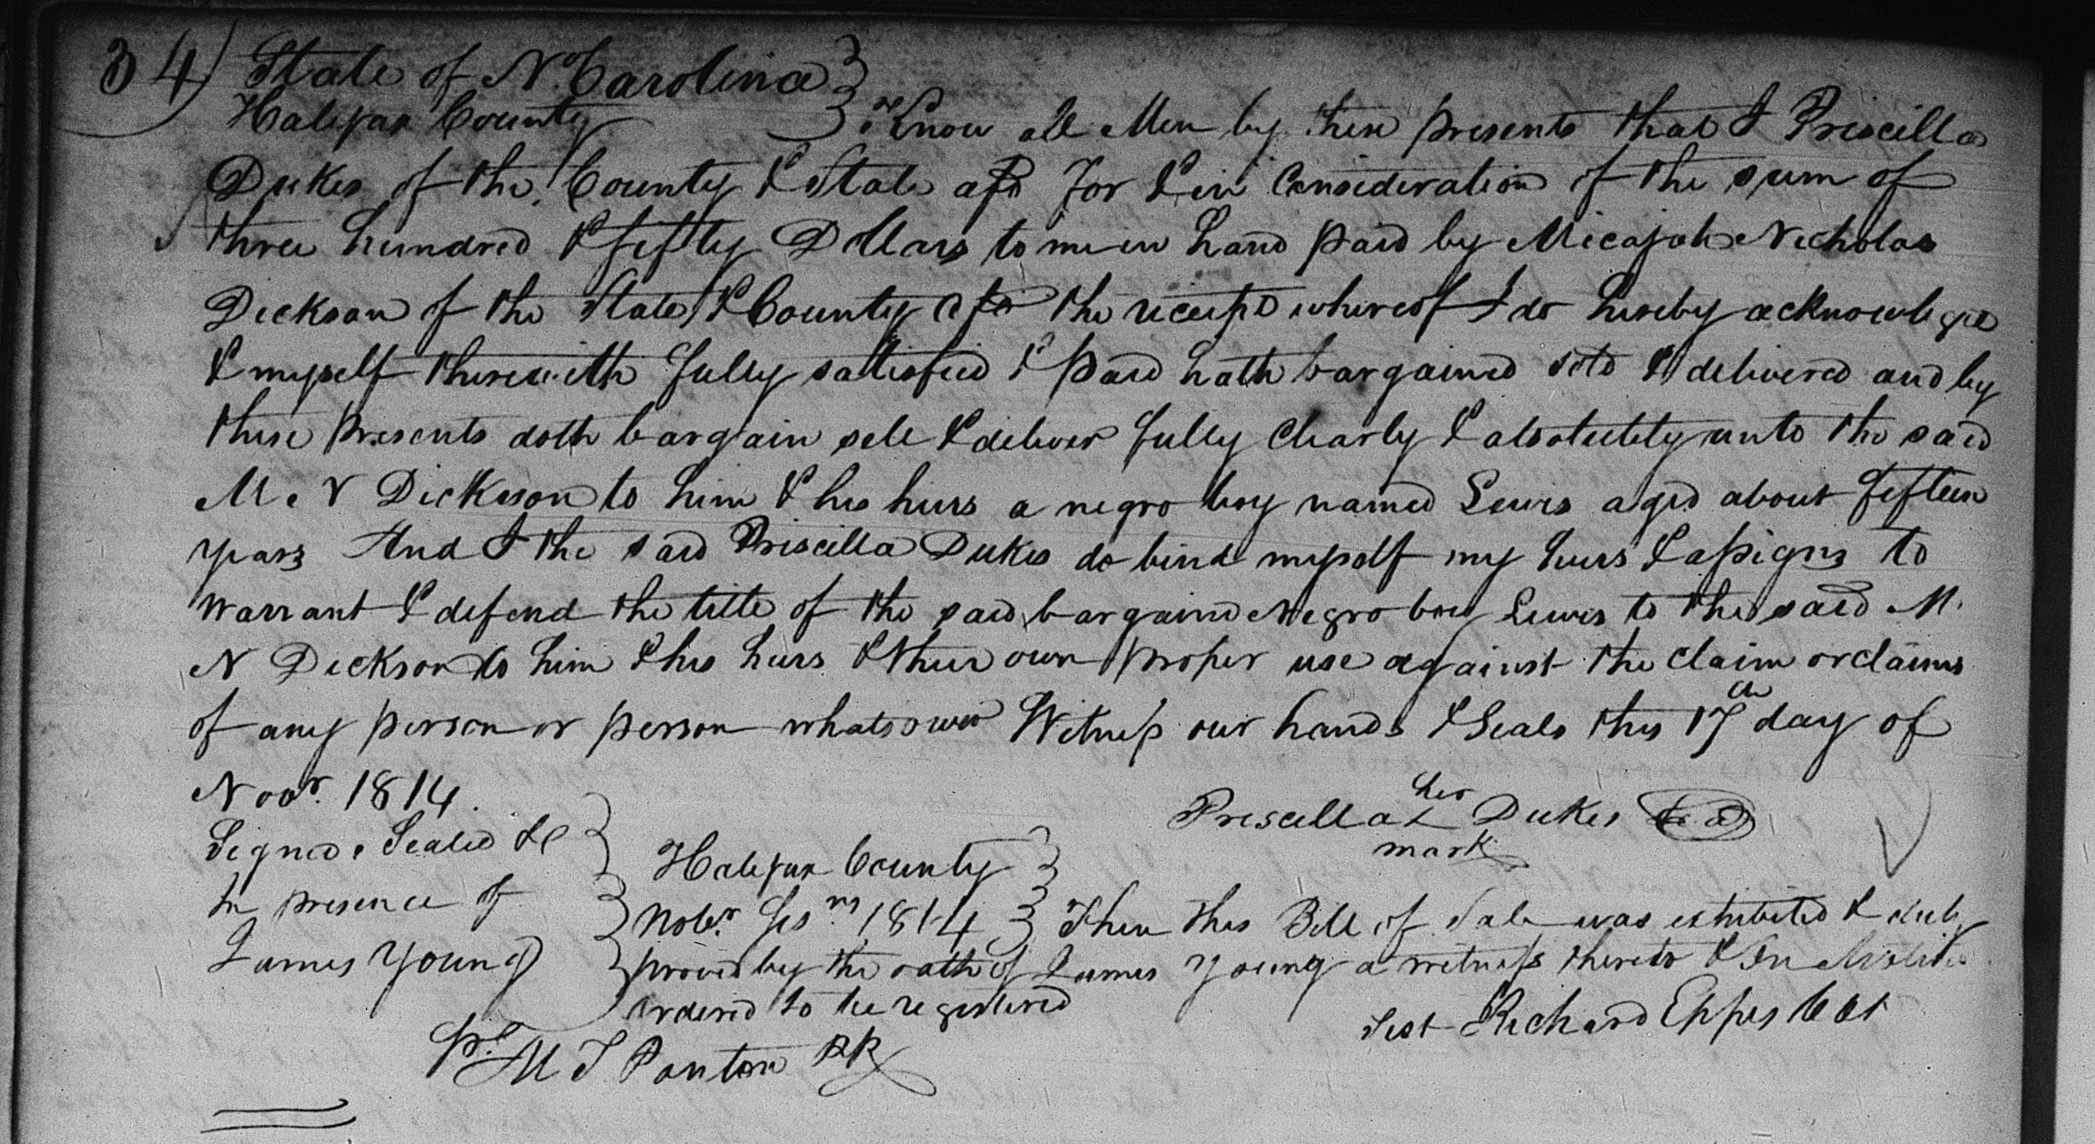 34) State of N. Carolina
Halifax County Know all Men by these presents that I Priscilla
Dukes of the County & State afd for & in Consideration of the sum of
three hundred & fifty Dollars to me in hand paid by Micajah Nicholas
Dickson of the State & County afd the receipt whereof I do hereby acknowlege
& myself therewith fully satisfied & paid hath bargained sold & delivered and by
these presents doth bargain sell & deliver fully Clearly & absolutely unto the said
M. N Dickson to him & his heirs a negro boy named Lewis aged about fifteen
years And I the said Priscilla Dukes do bind myself my heirs & assigns to
Warrant & defend the title of the said bargaind Negro boy Lewis to the said M.
N Dickson to him & his heirs & their own proper use against the claim or claims
of any person or person whatsoever Witness our hands & Seals this 17th day of
Novr. 1814.
Priscilla her mark Dukes
Signed, Sealed &c
In presence of
James Young
Halifax County
Novr. Sesns. 1814 Then this Bill of Sale was exhibited & duly
proved by the oath of James Young a witness thereto & On Motion
ordered to be registered
Test Richard Eppes CCt
Pr. M T Ponton PR